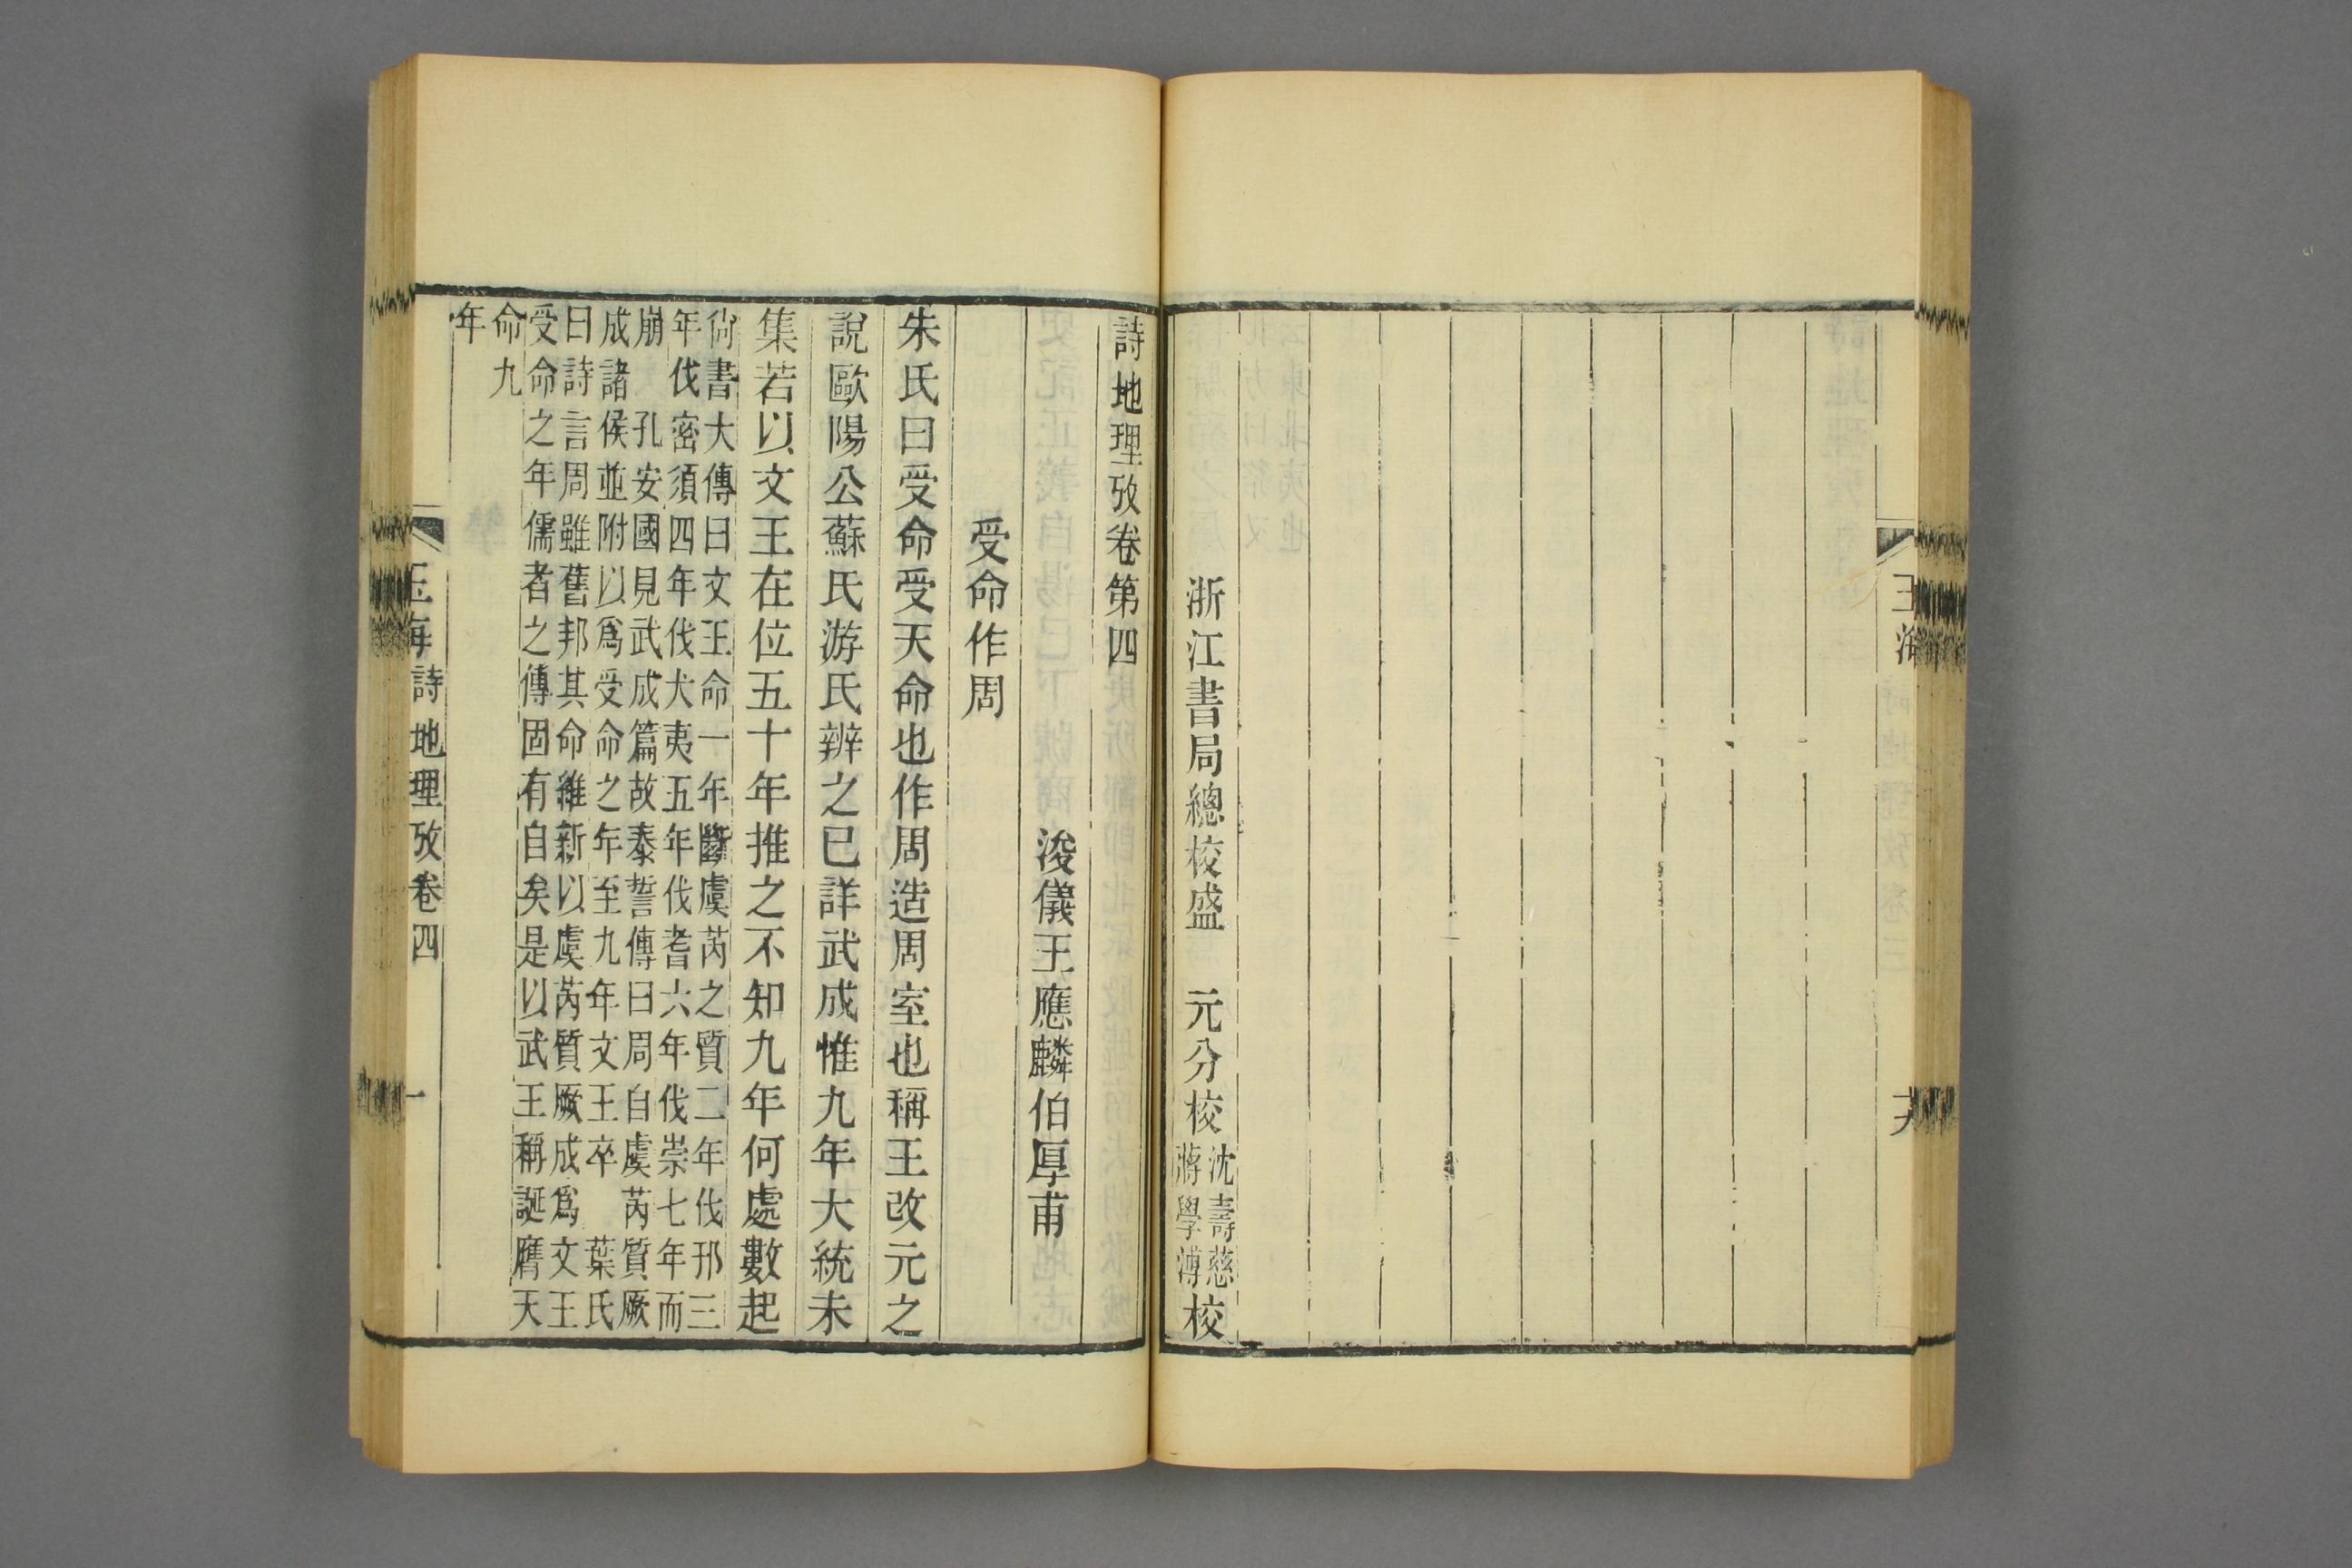 玉海
浙江書局總校盛　元分校沈壽慈校
蔣學溥
詩地理攷卷第四
浚儀王應麟伯厚甫
受命作周
朱氏曰受命受天命也作周造周室也稱王改元之
說歐陽公蘇氏游氏辨之已詳武成惟九年大統未
集若以文王在位五十年推之不知九年何處數起
尙書大傳曰文王命一年斷虞芮之質二年伐邘三
年伐密須四年伐犬夷五年伐耆六年伐崇七年而
崩　孔安國見武成篇故泰誓傳曰周自虞芮質厥
成諸侯並附以爲受命之年至九年文王卒　葉氏
曰詩言周雖舊邦其命維新以虞芮質厥成爲文王
受命之年儒者之傳固有自矣是以武王稱誕膺天
命九
年
玉海 詩地理攷卷四　一